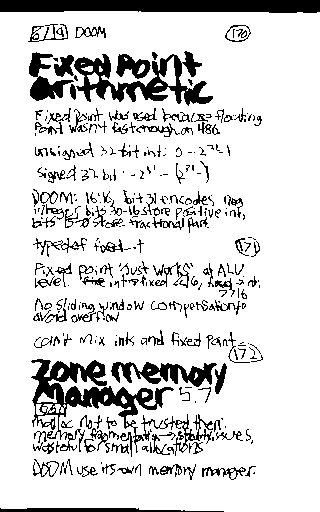 5/19 DOOM 170
Fixed Point
arithmetic
Fixed Point was used because floating
Point wasn't fast enough on 486.
unsigned 32 bit int: 0 - 2^32-1
signed 32 bit: -2^31 - (2^31-1)
DOOM: 16.16, bit 31 encodes neg
integer, bits 30-16 store positive int,
bits 15-0 store fractional part
typedef fixed_t 171
Fixed point "Just Works" at ALU
level. int→fixed <<16, fixed→int
>>16
No sliding window compensation to
avoid overflow
can't mix ints and fixed Point
172
Zone memory
Manager 5.7
malloc not to be trusted then.
memory fragmentation → stability issues,
wasteful for small allocations
DOOM use its own memory manager.